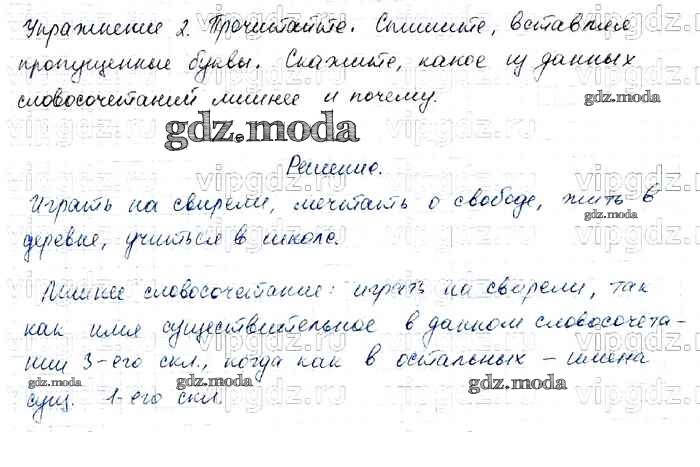 Упражнение 2. Прочитайте. Спишите, вставляя
пропущенные буквы. Скажите, какое из данных
словосочетаний лишнее и почему.
gdz.moda
gdz.moda
Решение.
Играть на свирели, мечтать о свободе, жить в
gdz.moda
деревне, учиться в школе.
Лишнее словосочетание: играть на свирели, так
как имя существительное в данном словосочета-
нии 3-его скл., когда как в остальных – имена
gdz.moda
gdz.moda
gdz.moda
сущ. 1-его скл.